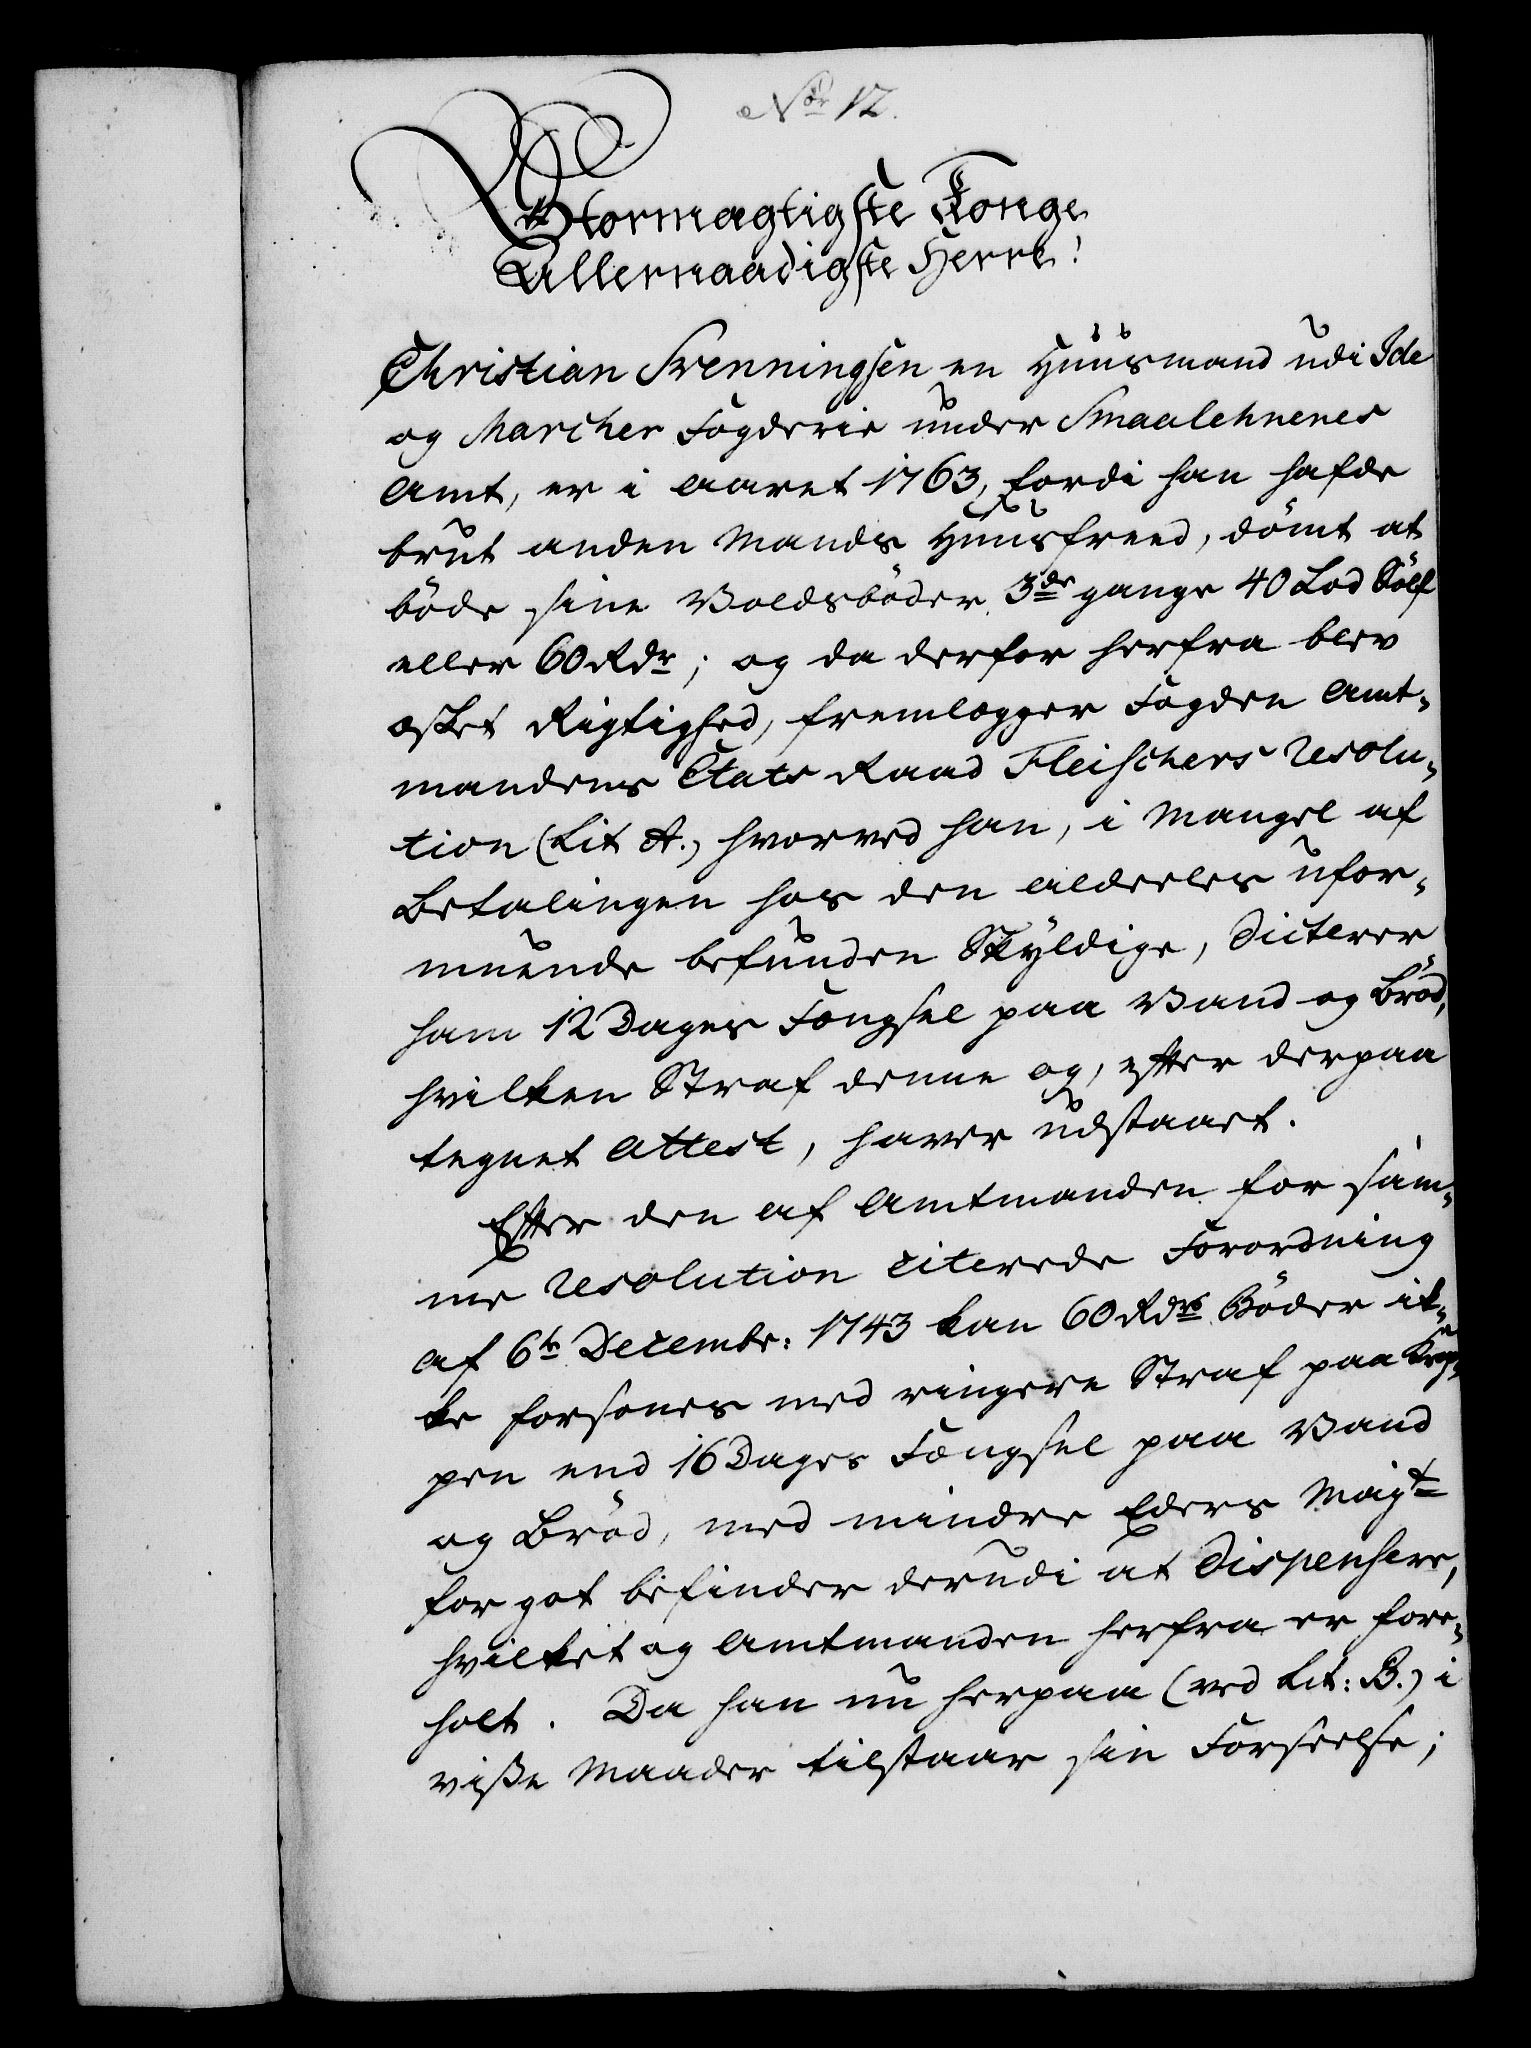 Nor 12.
Stormægtigste Konge
Allernaadigste Herre!
Christian Svenningsen en Huusmand udi Ide
og Marcher Fogderie under Smaalehnenes
Amt, er i Aaret 1763, fordi han hafde
brut anden Mands Huusfreed, dömt at
böde sine Voldsböder 3de gange 40 Lod Sölf
eller 60 Rdr; og da derfor herfra blev
æsket Rigtighed, fremlægger Fogden Amt-
mandens Etats Raad Fleischers Resolu-
tion (Lit A.) hvorved han, i Mangel af
Betalingen hos den aldeeles ufor-
muende befunden Skyldige, dicterer
ham 12 Dages Fængsel paa Vand og Bröd,
hvilken Straf denne og, efter derpaa
tegnet Attest, haver udstaaet.
Efter den af Amtmanden for sam-
me Resolution citerede Forordning
af 6te Decembr: 1743 kan 60 Rdrs Böder ik-
ke forsones med ringere Straf paa Krop-
pen end 16 Dages Fængsel paa Vand
og Bröd, med mindre Eders Mayt
for got befinder derudi at dispensere,
hvilket og Amtmanden herfra er fore-
holt. Da han nu herpaa (ved Lit: B.) i
visse Maader tilstaar sin Forseelse;